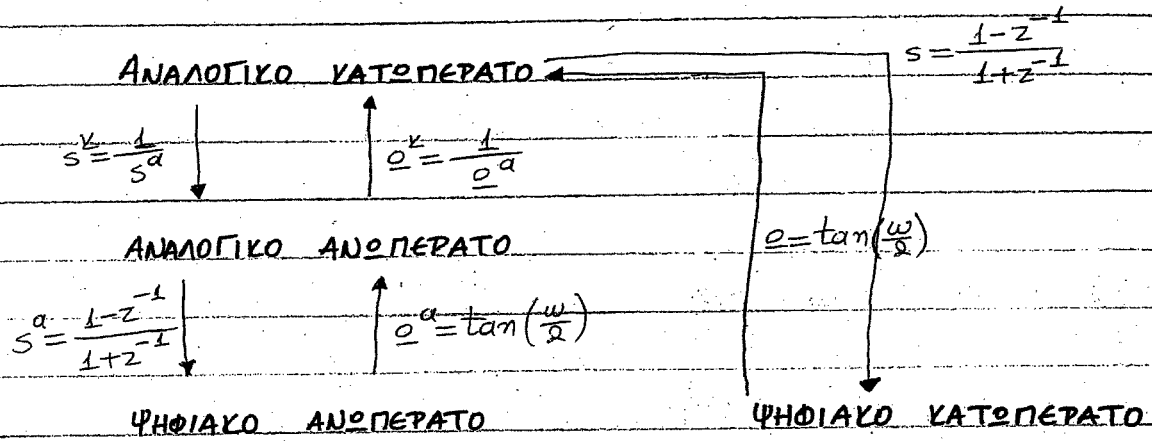 ΑΝΑΛΟΓΙΚΟ ΚΑΤΩΠΕΡΑΤΟ
s = (1-z^-1)/(1+z^-1)
s^κ = 1/s^α
Ω^κ = 1/Ω^α
ΑΝΑΛΟΓΙΚΟ ΑΝΩΠΕΡΑΤΟ
Ω = tan(ω/2)
s^α = (1-z^-1)/(1+z^-1)
Ω^α = tan(ω/2)
ΨΗΦΙΑΚΟ ΑΝΩΠΕΡΑΤΟ
ΨΗΦΙΑΚΟ ΚΑΤΩΠΕΡΑΤΟ